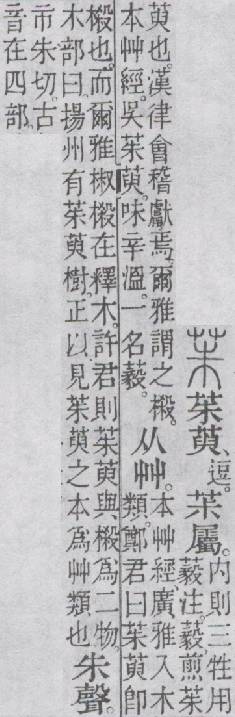 茱茱萸、逗。茱屬。
內則三牲用
藙注。藙煎茱
萸也。漢律會稽獻焉。爾雅謂之樧。
本艸經。吳茱萸。味辛溫。一名藙。
从艸。
本艸經、廣雅入木
類。鄭君曰茱萸卽
樧也。而爾雅椒樧在釋木。許君則茱萸與樧爲二物。
木部曰揚州有茱萸樹。正以見茱萸之本爲艸類也
朱聲。
市朱切。古
音在四部。